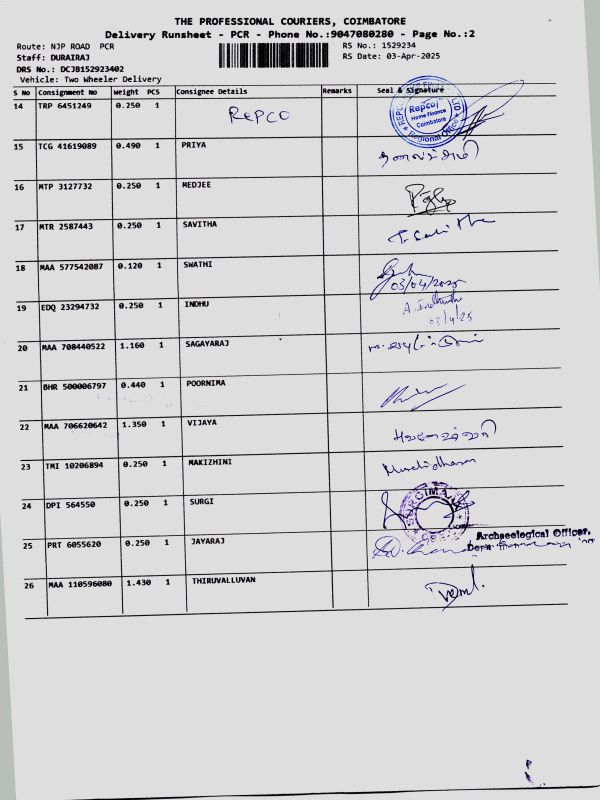 THE PROFESSIONAL COURIERS, COIMBATORE
Delivery Runsheet - PCR - Phone No.:9047080280 - Page No.:2
Route: NJP ROAD PCR
RS No.: 1529234
Staff: DURAIRAJ
RS Date: 03-Apr-2025
DRS No.: DCJB152923402
Vehicle: Two Wheeler Delivery
S No Consignment No Weight PCS Consignee Details Remarks Seal & Signature
14 TRP 6451249 0.250 1 REPCO
Repco
Home Finance
Coimbatore
Regional Office
15 TCG 41619089 0.490 1 PRIYA
16 MTP 3127732 0.250 1 MEDJEE
17 MTR 2587443 0.250 1 SAVITHA T. Savitha
18 MAA 577542087 0.120 1 SWATHI
03/04/2025
19 EDQ 23294732 0.250 1 INDHU
03/4/25
20 MAA 708440522 1.160 1 SAGAYARAJ
21 BHR 500006797 0.440 1 POORNIMA
22 MAA 706620642 1.350 1 VIJAYA
23 TMI 10206894 0.250 1 MAKIZHINI Muralidharan
24 DPI 564550 0.250 1 SURGI
25 PRT 6055620 0.250 1 JAYARAJ Archaeological Officer,
26 MAA 110596080 1.430 1 THIRUVALLUVAN